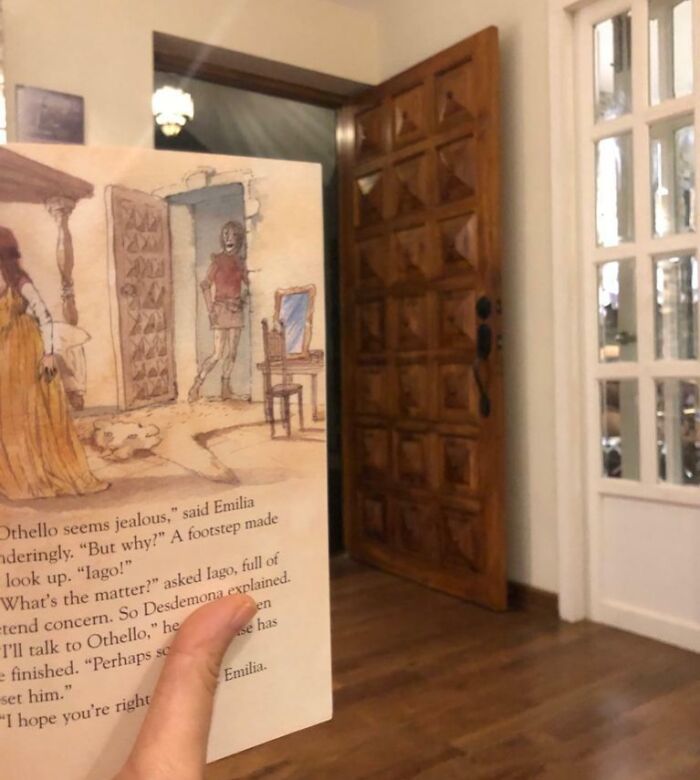 Othello seems jealous,” said Emilia
nderingly. “But why?” A footstep made
look up. “Iago!”
“What’s the matter?” asked Iago, full of
etend concern. So Desdemona explained.
“I’ll talk to Othello,” he en
e finished. “Perhaps se has
set him.”
“I hope you’re right Emilia.